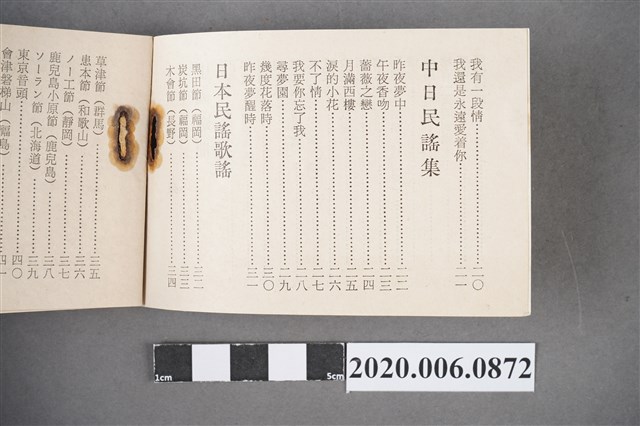 我有一段情…………二〇
我還是永遠愛着你…………二一
中日民謠集
昨夜夢中…………二二
午夜香吻…………二三
薔薇之戀…………二四
月滿西樓…………二五
淚的小花…………二六
不了情…………二七
我要你忘了我…………二八
尋夢園…………二九
幾度花落時…………三〇
昨夜夢醒時…………三一
日本民謠歌謠
黑田節（福岡）…………三二
炭坑節（福岡）…………三三
木會節（長野）…………三四
草津節（群馬）…………三五
串本節（和歌山）…………三六
ノーエ節（靜岡）…………三七
鹿兒島小原節（鹿兒島）…………三八
ソーラン節（北海道）…………三九
東京音頭…………四〇
會津磐梯山（福島）…………四一
2020.006.0872
1cm
5cm